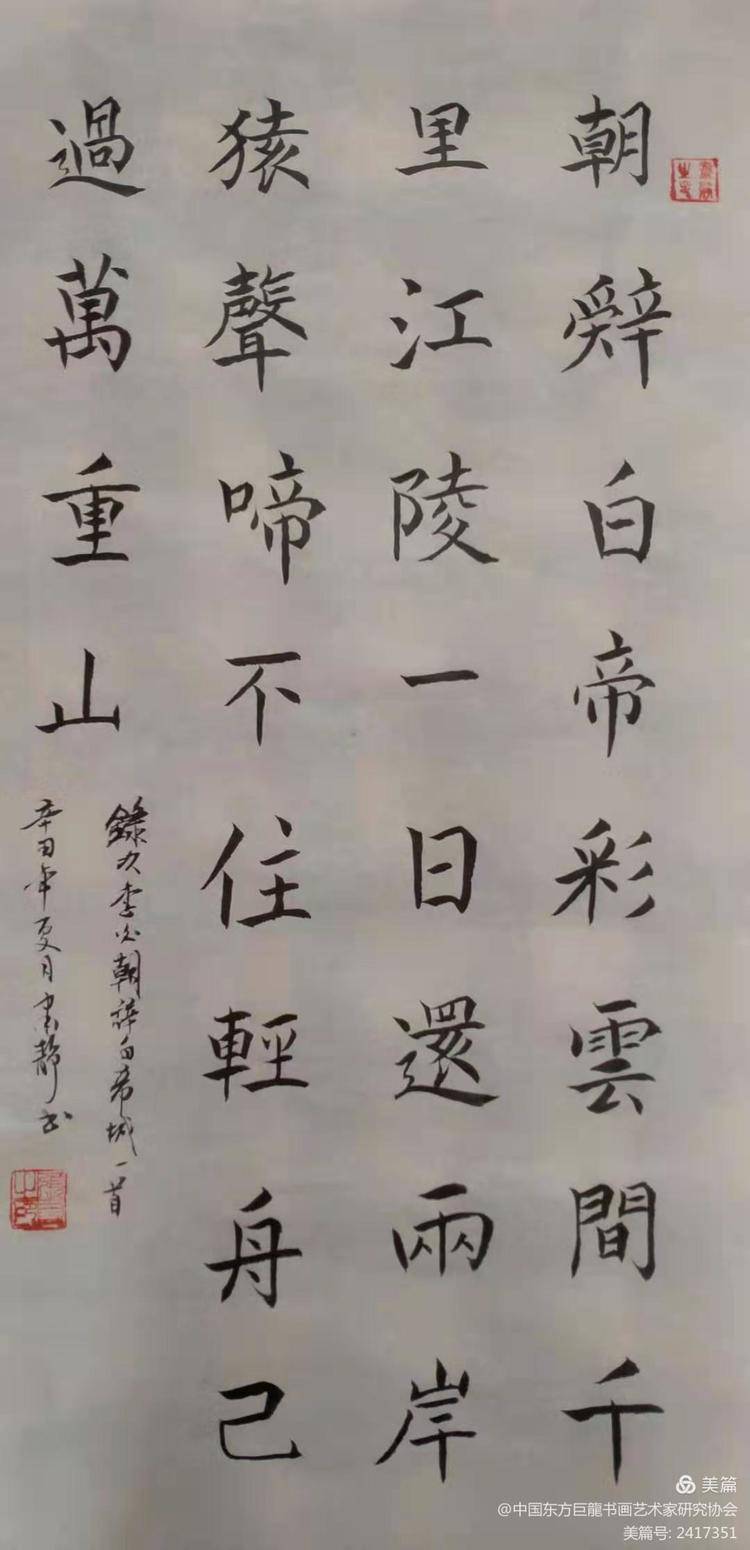 朝辤白帝彩雲間千
里江陵一日還兩岸
猿聲啼不住輕舟己
過萬重山
錄李白朝辞白帝城一首
辛丑年夏月書静书
美篇
@中国东方巨龍书画艺术家研究协会
美篇号: 2417351